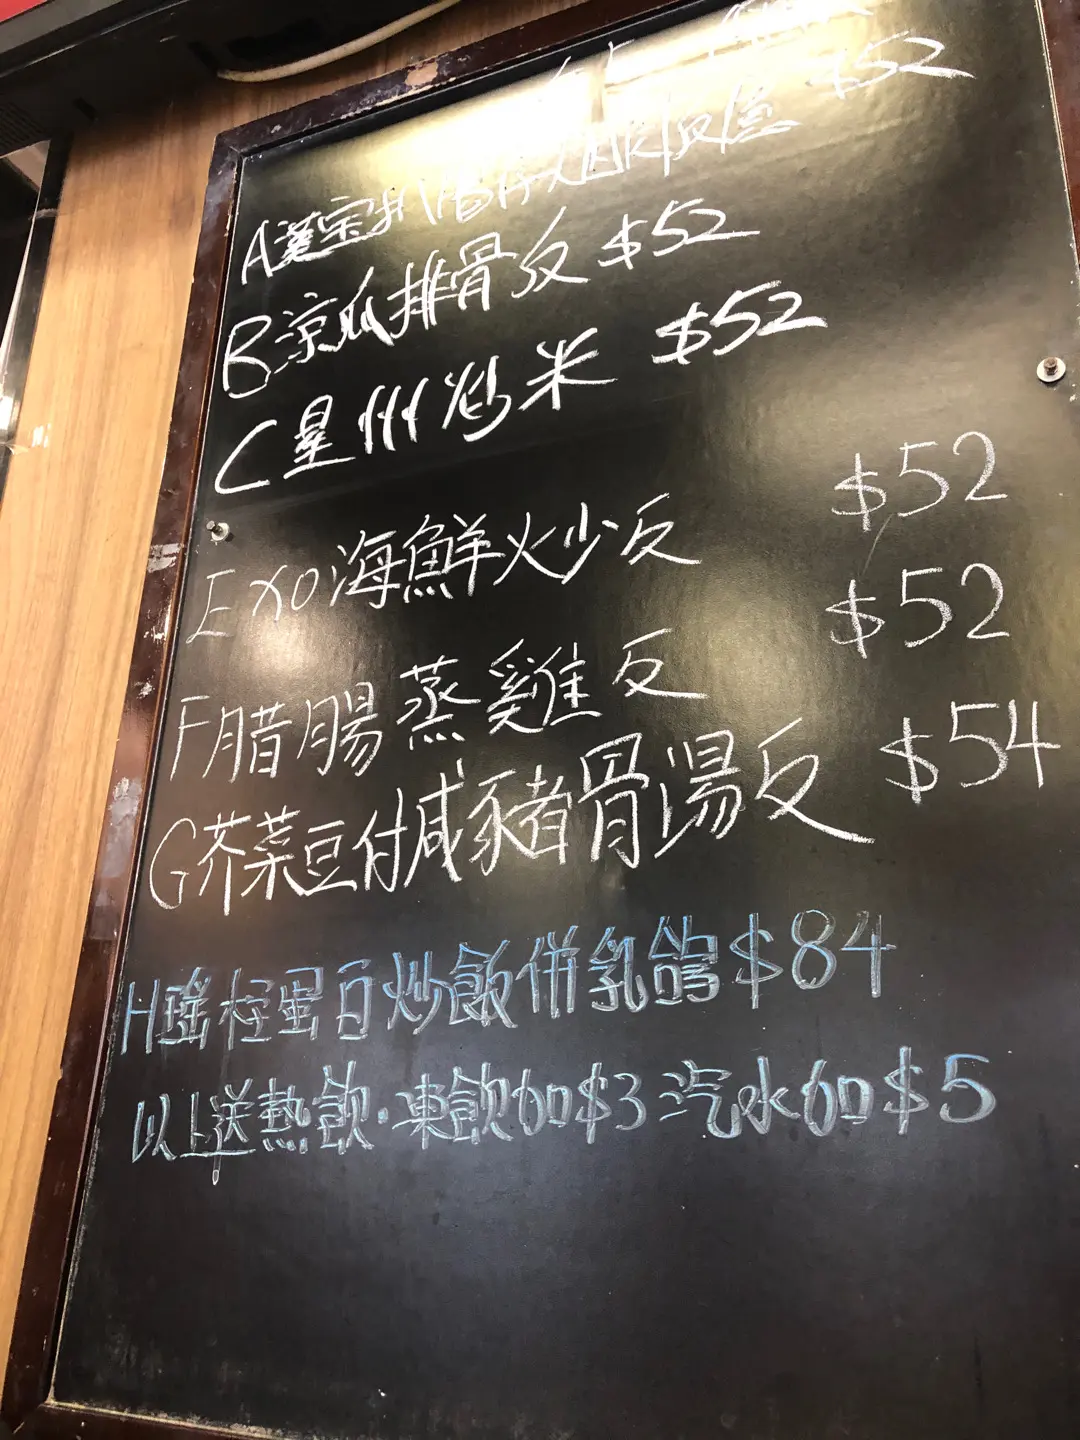 $52
A漢宝扒腸仔
B凉瓜排骨反 $52
C星州炒米 $52
E XO海鮮炒反 $52
F腊腸蒸雞反 $52
G芥菜豆付咸豬骨湯反 $54
H瑤柱蛋白炒飯併乳鴿$84
以上送熱飲.凍飲加$3汽水加$5